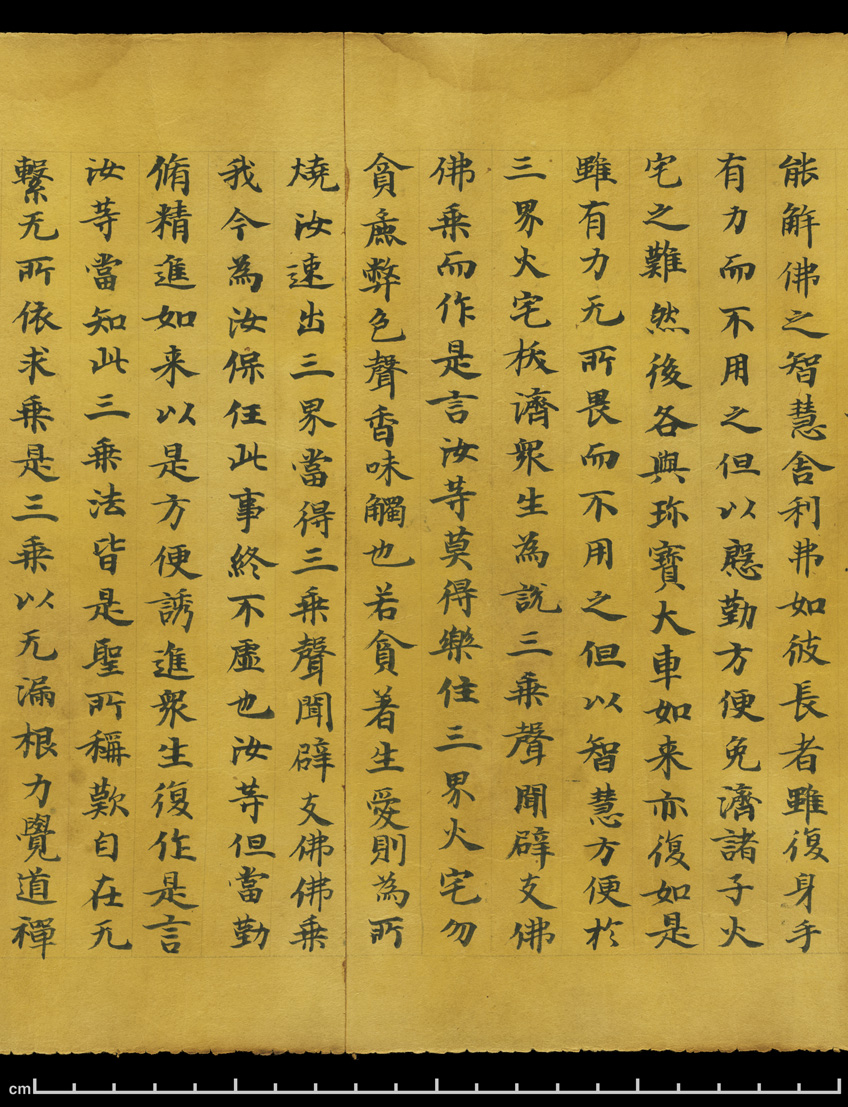 能解佛之智慧舍利弗如彼長者雖復身手
有力而不用之但以慇勤方便免濟諸子火
宅之難然後各與珎寶大車如来亦復如是
雖有力无所畏而不用之但以智慧方便於
三界火宅拔濟衆生為說三乗聲聞辟支佛
佛乗而作是言汝等莫得樂住三界火宅勿
貪麁弊色聲香味觸也若貪著生愛則為所
燒汝速出三界當得三乗聲聞辟支佛佛乗
我今為汝保任此事終不虛也汝等但當勤
脩精進如来以是方便誘進衆生復作是言
汝等當知此三乗法皆是聖所稱歎自在无
繫无所依求乗是三乗以无漏根力覺道禪
cm